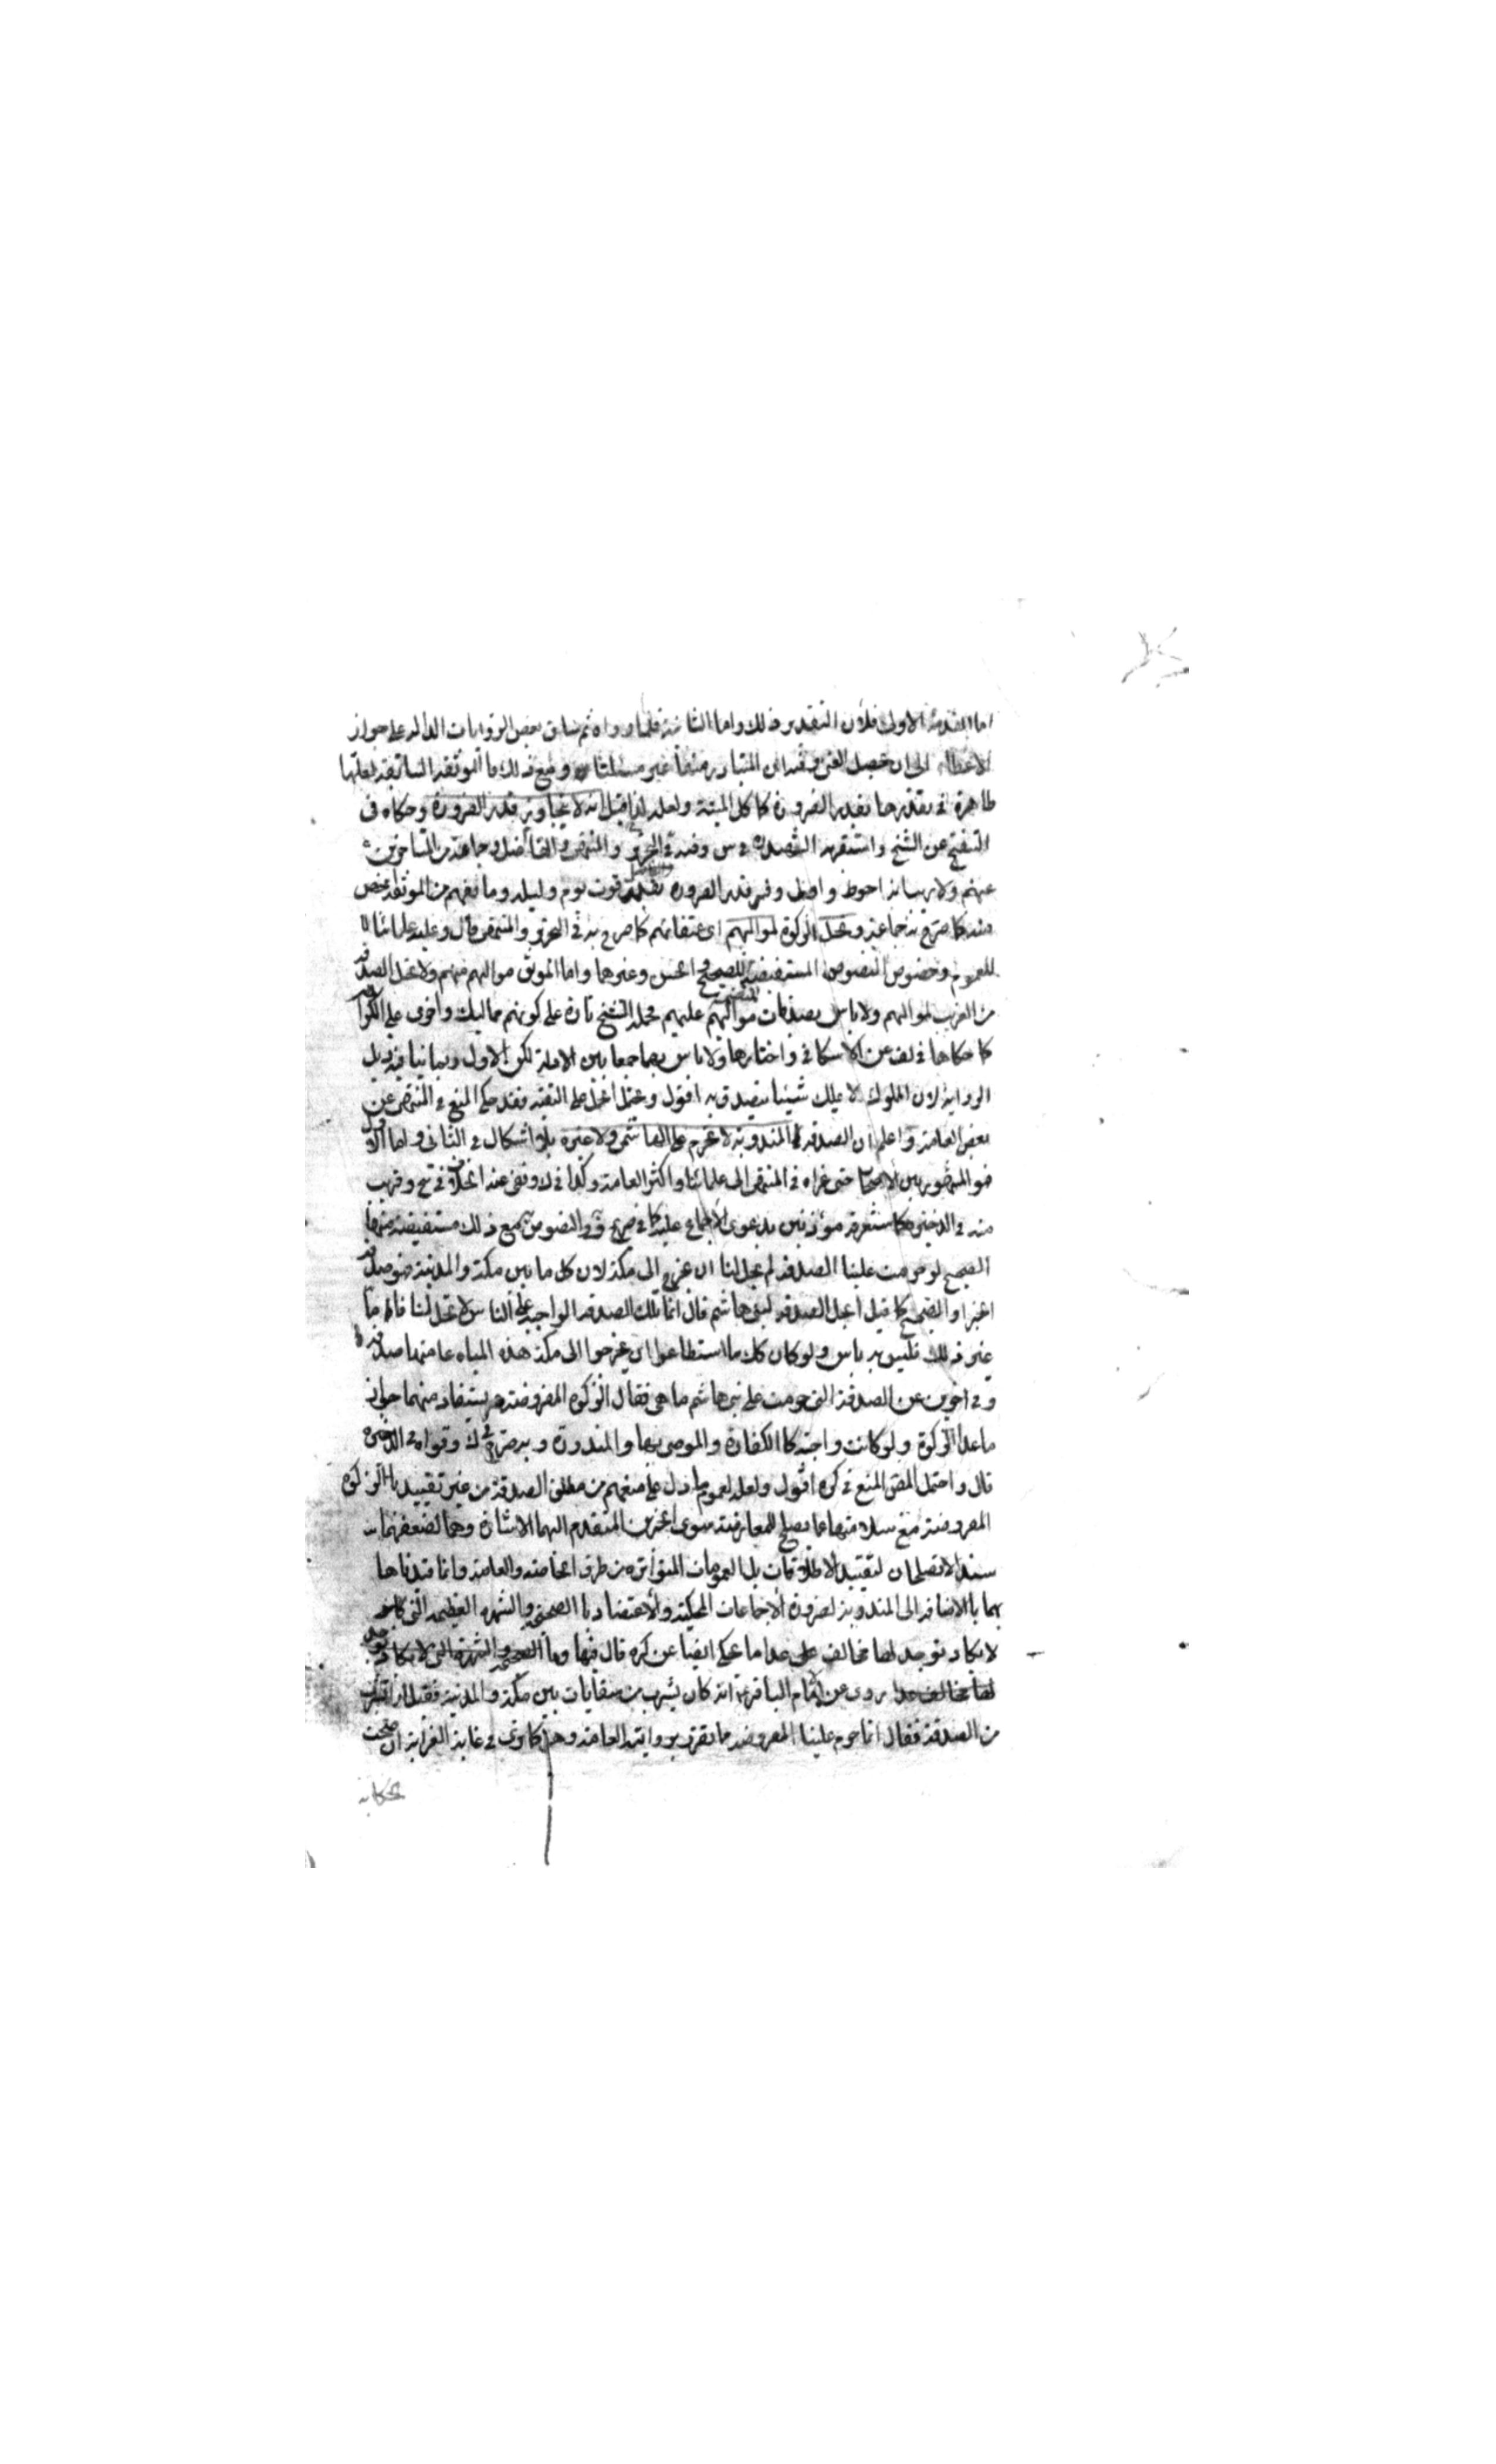 اما المقدمة الاولى فلأن التقدير ذلك واما الثانية فلما رواه ثم ساق بعض الروايات الدالة على جواز
الاعطاء الى ان يحصل الغنى وفيه ان المتبادر منها غير مسئلتنا ومع ذلك فالموثقة السابقة بعلتها
ظاهرة في تقديرها بقدر الضرورة كاكل الميتة ولعله لذا قيل انه لا يتجاوز قدر الضرورة وحكاه في
التنقيح عن الشيخ واستقربه الشهيد في س وفيه في التحرير والمنتهى والفاضل وجماعة من المتاخرين
عنهم ولا ريب انه احوط واولى وفسر قدر الضرورة بقوت يوم وليلة وما يفهم من الموثقة اخص
منه كما صرح به جماعة وتحل الزكوة لمواليهم اي عتقائهم كما صرح به في التحرير والمنتهى قال وعليه علمائنا
للعموم وخصوص النصوص المستفيضة الصحيح الحسن وغيرها واما الموثق مواليهم منهم ولا تحل الصدقة
من الغريب لمواليهم ولا باس بصدقات مواليهم عليهم فحمله الشيخ تارة على كونهم مماليك واخرى على الكراهة
كما حكاها في لف عن الاسكافي واختارها ولا باس بها جمعا بين الادلة لكن الاول ربما ينافيه ذيل
الرواية لان المملوك لا يملك شيئا يتصدق به اقول ويحتمل الحمل على التقية فقد حكى المنع في المنتهى عن
بعض العامة واعلم ان الصدقة المندوبة لا تحرم على الهاشمي ولا غيره بلا اشكال في الثاني واما الاول
فهو المشهور بين الاصحاب حتى عزاه في المنتهى الى علمائنا واكثر العامة وكذا في ك ونفى عنه الخلاف في ح وقريب
منه في الذخيرة كما ستعرفه مؤذنين بدعوى الاجماع عليه كما في صريح ف والنصوص مع ذلك مستفيضة منها
الصحيح لو حرمت علينا الصدقة لم يحل لنا ان نخرج الى مكة لان كل ما بين مكة والمدينة فهو صدقة
الخبر والصحيح كما قيل اتحل الصدقة لبنى هاشم قال انما تلك الصدقة الواجبة على الناس لا تحل لنا فاما
غير ذلك فليس به باس ولو كان كذلك ما استطاعوا ان يخرجوا الى مكة هذه المياه عامتها صدقة
وفي اخرين عن الصدقة التي حرمت على بنى هاشم ما هى فقال الزكوة المفروضة ويستفاد منهما جواز
ما عدا الزكوة ولو كانت واجبة كالكفارة والموصى بها والمنذورة وبه صرح في ك وقواه في الذخيرة
قال واحتمل المص المنع في كره اقول ولعله لعموم ما دل على منعهم من مطلق الصدقة من غير تقييد بالزكوة
المفروضة مع سلامتها عما يصلح للمعارضة سوى الخبرين المتقدم اليهما الاشارة وهما لضعفهما
سندا لا يصلحان لتقييد الاطلاقات بل العمومات المتواترة من طرق الخاصة والعامة وانما قيدناها
بهما بالاضافة الى المندوبة لضرورة الاجماعات المحكية والاعتضاد بالصحيحين والشهرة العظيمة التي كادت
لا يكاد يوجد لها مخالف عدا ما يحكى ايضا عن كره قال فيها
روى عن الامام الباقر انه كان يشرب من سقايات بين مكة والمدينة فقيل له اتشرب
من الصدقة فقال انما حرم علينا المفروضة ما تفرد بروايته العامة وهو كما ترى في غاية الغرابة ان صحت
الحكاية